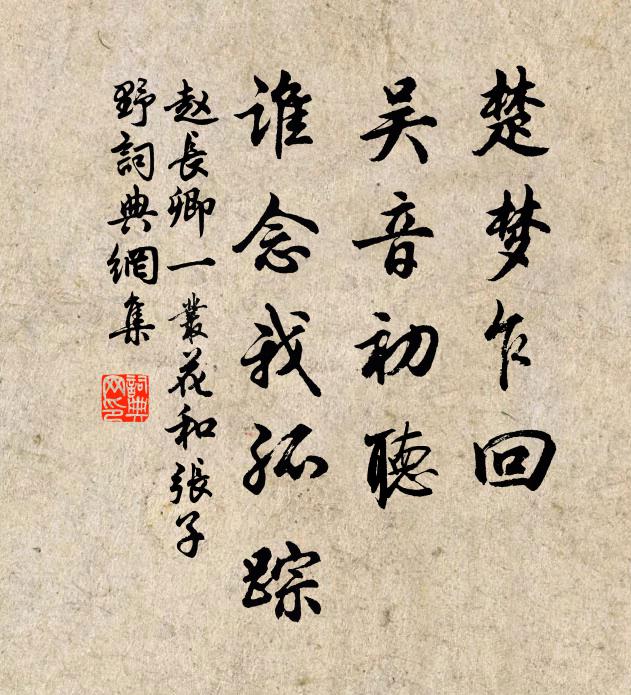 楚梦乍回
吴音初聴
谁念我孤踪
赵長卿一叢花和張子
野詞典網集
詞典网印